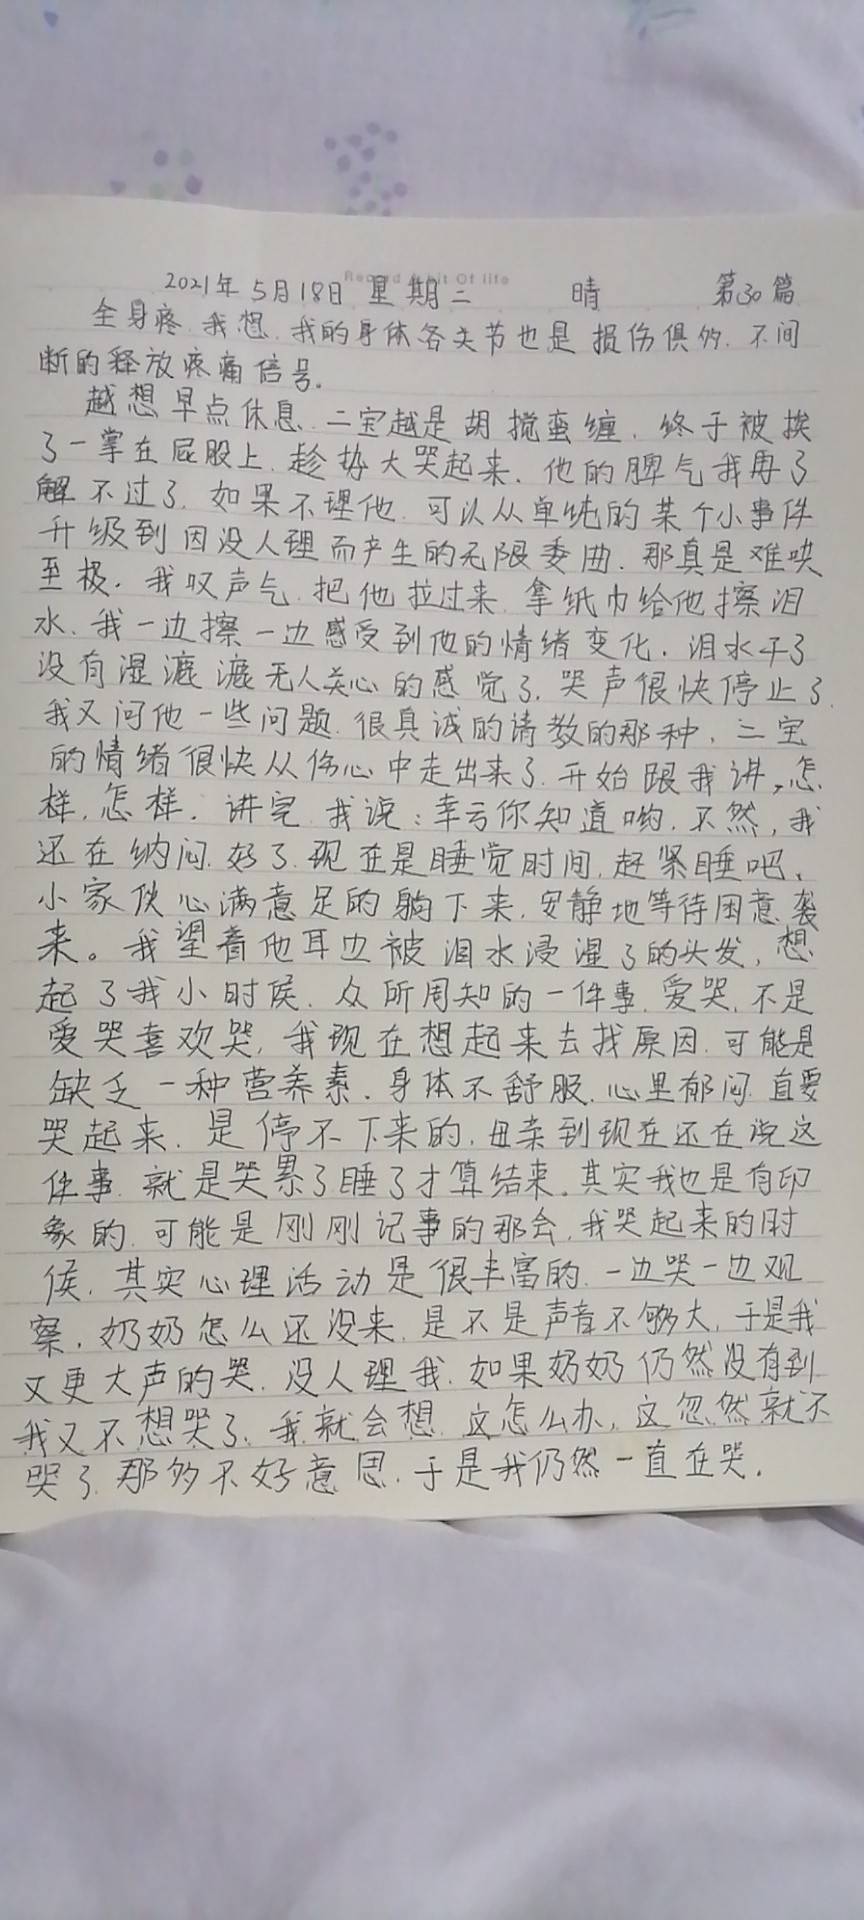 Record a bit Of life
2021年5月18日 星期二 晴 第30篇
全身疼.我想.我的身体各关节也是损伤俱的.不间
断的释放疼痛信号.
越想早点休息.二宝越是胡搅蛮缠.终于被挨
了一掌在屁股上.趁势大哭起来.他的脾气我再了
解不过了.如果不理他.可以从单纯的某个小事件
升级到因没人理而产生的无限委曲.那真是难哄
至极.我叹声气.把他拉过来.拿纸巾给他擦泪
水.我一边擦一边感受到他的情绪变化.泪水干了
没有湿漉漉无人关心的感觉了.哭声很快停止了.
我又问他一些问题.很真诚的请教的那种.二宝
的情绪很快从伤心中走出来了.开始跟我讲,怎
样,怎样.讲完.我说:幸亏你知道哟.不然,我
还在纳闷.好了.现在是睡觉时间.赶紧睡吧.
小家伙心满意足的躺下来.安静地等待困意袭
来。我望着他耳边被泪水浸湿了的头发,想
起了我小时候.众所周知的一件事.爱哭.不是
爱哭喜欢哭,我现在想起来去找原因.可能是
缺乏一种营养素.身体不舒服.心里郁闷.直要
哭起来.是停不下来的.母亲到现在还在说这
件事.就是哭累了睡了才算结束.其实我也是有印
象的.可能是刚刚记事的那会.我哭起来的时
候.其实心理活动是很丰富的.一边哭一边观
察.奶奶怎么还没来.是不是声音不够大,于是我
又更大声的哭.没人理我.如果奶奶仍然没有到
我又不想哭了.我就会想.这怎么办,这忽然就不
哭了.那多不好意思.于是我仍然一直在哭.